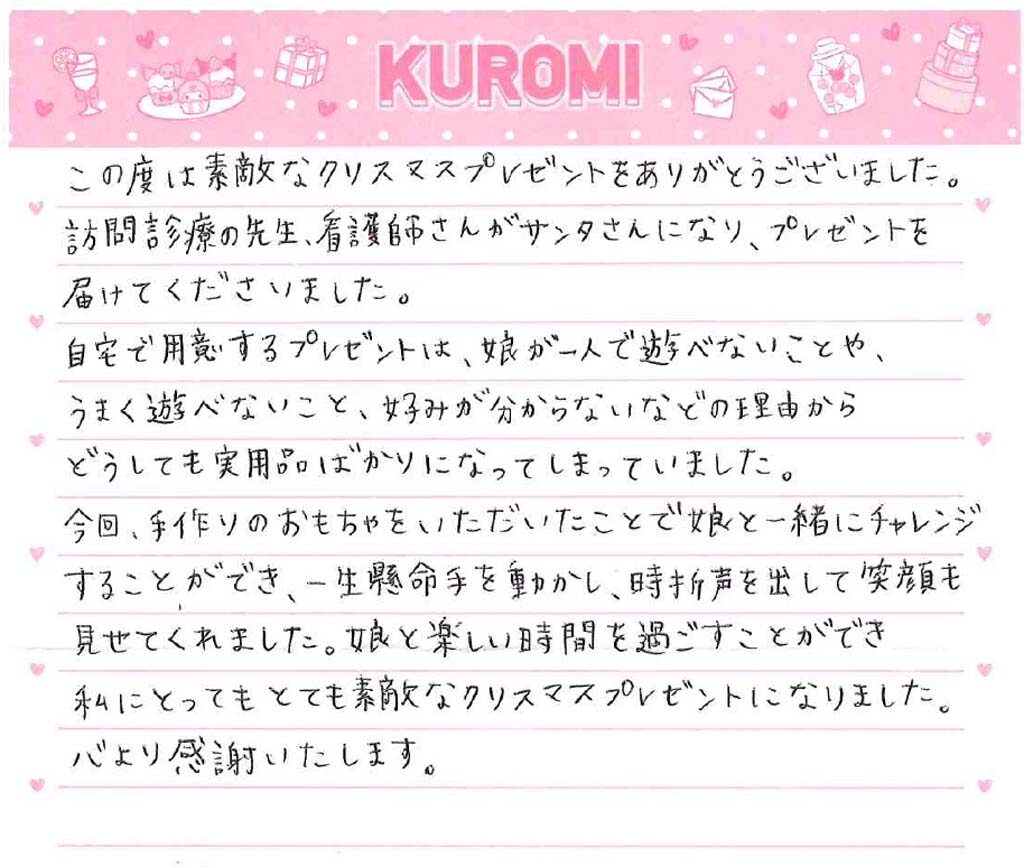 KUROMI
この度は素敵なクリスマスプレゼントをありがとうございました。
訪問診療の先生、看護師さんがサンタさんになり、プレゼントを
届けてくださいました。
自宅で用意するプレゼントは、娘が一人で遊べないことや、
うまく遊べないこと、好みが分からないなどの理由から
どうしても実用品ばかりになってしまっていました。
今回、手作りのおもちゃをいただいたことで娘と一緒にチャレンジ
することができ、一生懸命手を動かし、時折声を出して笑顔も
見せてくれました。娘と楽しい時間を過ごすことができ
私にとってもとても素敵なクリスマスプレゼントになりました。
心より感謝いたします。